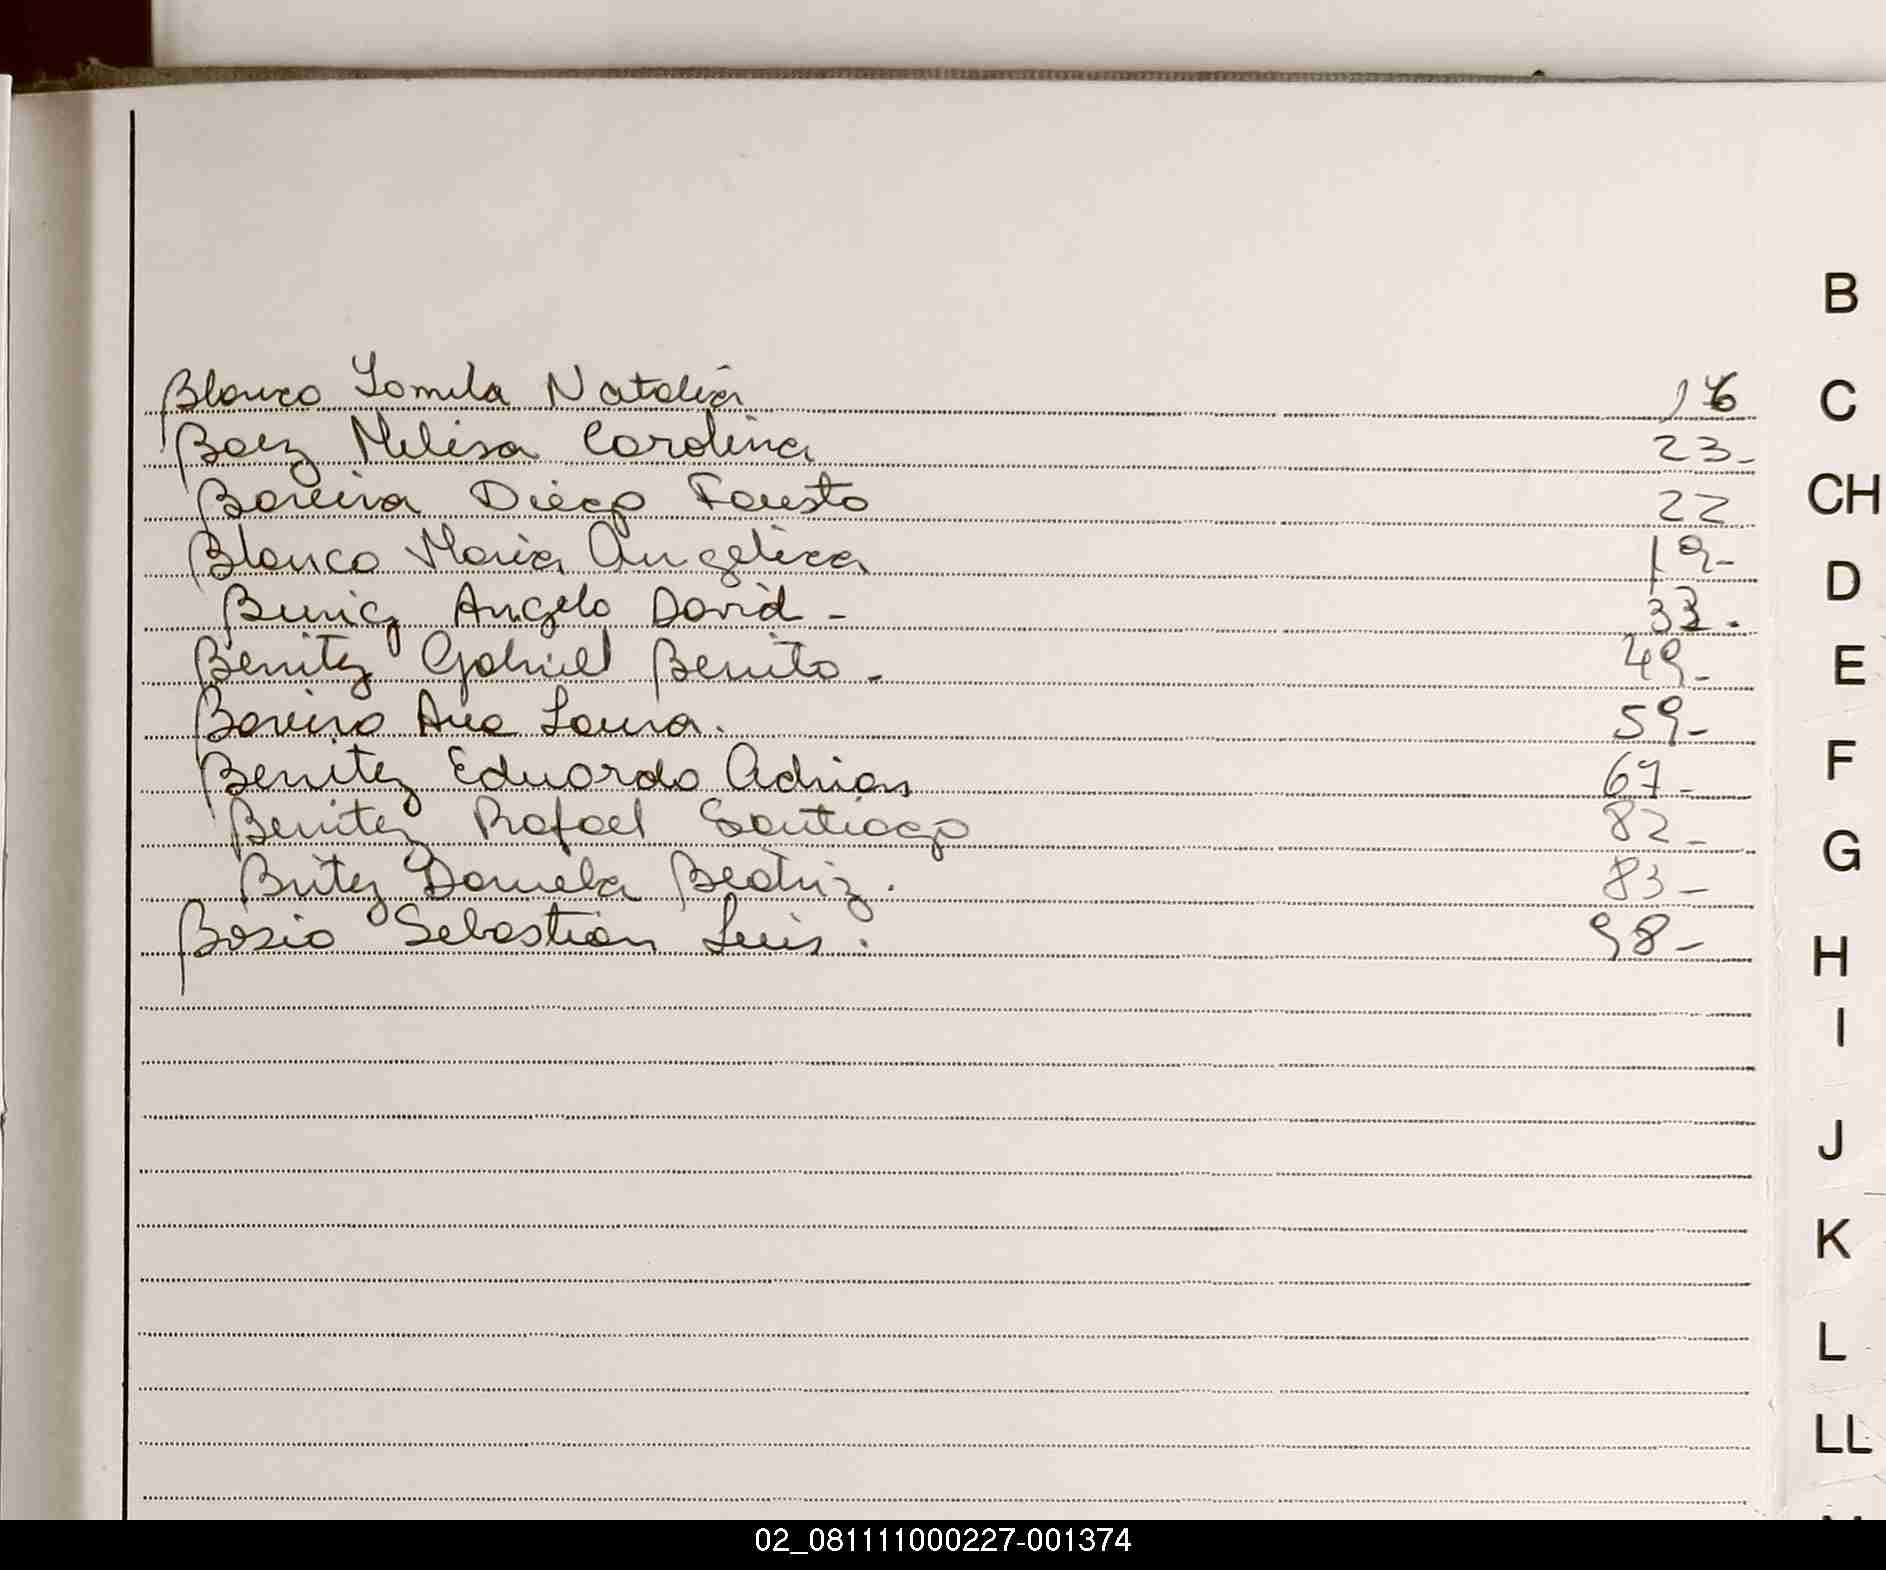 Blanco Yamila Natalia 16
Baez Melisa Carolina 23-
Bareira Diego Fausto 22
Blanco Maria Angelica 19-
Angelo David - 33.
Benitez Gabriel Benito - 49-
Bareiro Ana Laura. 59-
Benitez Eduardo Adrian 67-
Benitez Rafael Santiago 82-
Britez Daniela Beatriz. 83-
Bosio Sebastian Luis. 98-
B
C
CH
D
E
F
G
H
I
J
K
L
LL
02_081111000227-001374